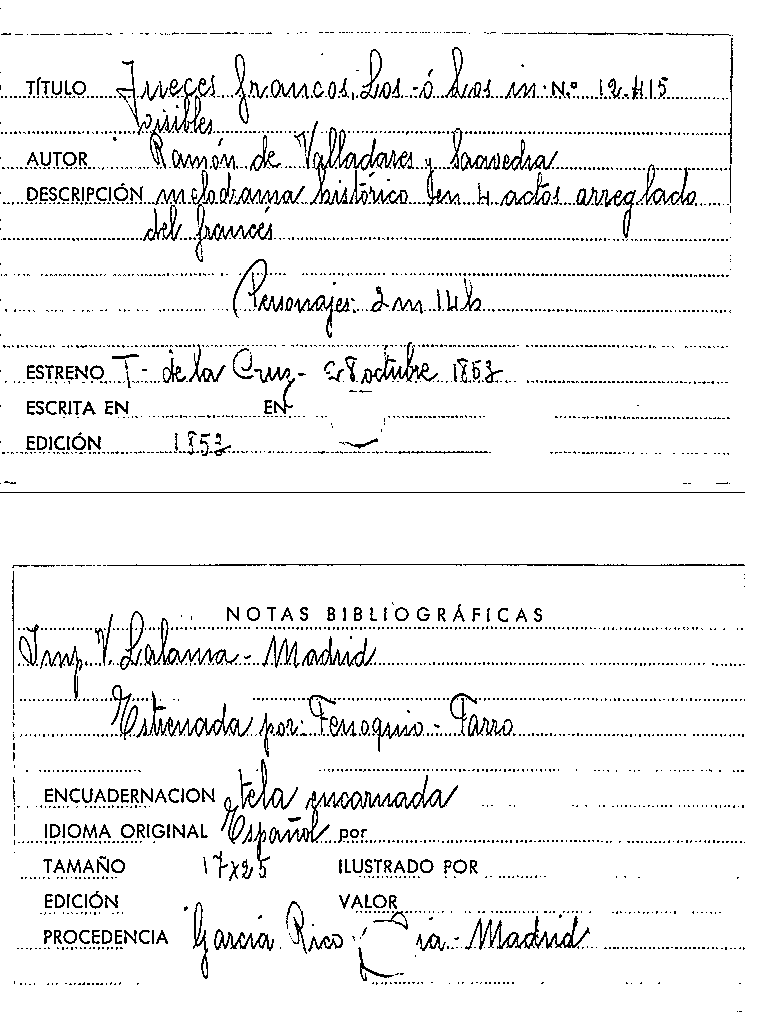 TÍTULO Jueces francos, Los -ó Los in- N.º 12.415
visibles
AUTOR Ramón de Valladares y Saavedra
DESCRIPCIÓN melodrama histórico en 4 actos arreglado
del francés
Personajes: 2 m 14 h
ESTRENO T- de la Cruz- 28 octubre 1853
ESCRITA EN EN
EDICIÓN 1853
NOTAS BIBLIOGRÁFICAS
Imp. V. Lalama - Madrid
Estrenada por: - Farro
ENCUADERNACION tela encarnada
IDIOMA ORIGINAL Español por
TAMAÑO 17x25 ILUSTRADO POR
EDICIÓN VALOR
PROCEDENCIA García Rico y Cia.- Madrid